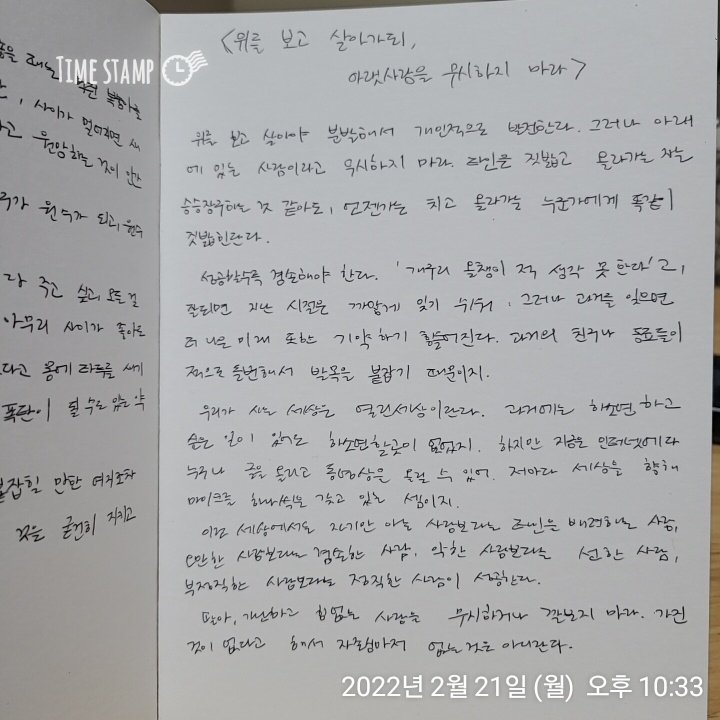 TIME STAMP
<위를 보고 살아가되,
아랫사람을 무시하지 마라>
위를 보고 살아야 분발해서 개인적으로 발전한다. 그러나 아래
에 있는 사람이라고 무시하지 마라. 타인을 짓밟고 올라가는 자는
승승장구하는 것 같아도, 언젠가는 치고 올라가는 누군가에게 똑같이
짓밟힌단다.
성공할수록 겸손해야 한다. '개구리 올챙이 적 생각 못 한다'고,
잘되면 지난 시절은 까맣게 잊기 쉬워. 그러나 과거를 잊으면
더 나은 미래 또한 기약하기 힘들어진다. 과거의 친구나 동료들이
적으로 돌변해서 발목을 붙잡기 때문이지.
우리가 사는 세상은 열린세상이란다. 과거에는 하소연하고
싶은 일이 있어도 하소연할곳이 없었지. 하지만 지금은 인터넷에다
누구나 글을 올리고 동영상을 올릴 수 있어. 저마다 세상을 향해
마이크를 하나씩은 갖고 있는 셈이지.
이런 세상에서는 자기만 아는 사람보다는 타인을 배려하는 사람,
오만한 사람보다는 겸손한 사람, 악한 사람보다는 선한 사람,
부정직한 사람보다는 정직한 사람이 성공한다.
딸아, 가난하고 힘없는 사람을 무시하거나 깔보지 마라. 가진
것이 없다고 해서 자존심마저 없는것은 아니란다.
, 사이가 멀어지면 새
원망하는 것이 인간
가 원수가 되고, 원수
주고 싶고, 모든 걸
아무리 사이가 좋아도
폭탄이 될 수도 있는 약
붙잡힐 만한 여지조차
것을 굳건히 지키고
2022년 2월 21일 (월) 오후 10:33